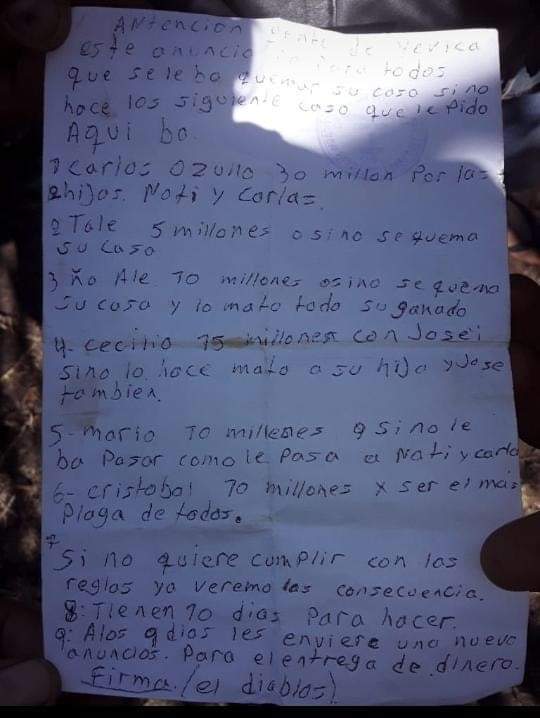 Antencion gente de Yevica
este anuncio para todos
que se le ba quemar su casa si no
hace los siguiente caso que le pido
Aqui ba.
1 Carlos Ozuno 30 millon Por las
2 hijas. Noti y Carlas.
2 Tale 5 millones o sino se quema
su casa
3 ño Ale 10 millones osino se quema
su casa y lo mato todo su ganado
4- cecilio 15 millones con José i
sino lo hace mato a su hija y Jose
tambien.
5- mario 10 millones o si no le
ba Pasar como le Pasa a Noti y carla
6- cristobal 10 millones x ser el mas
Plaga de todos.
7 Si no quiere cumplir con las
reglos ya veremo las consecuencia.
8: Tienen 10 dias Para hacer.
9: A los 9 dias les enviere una nuevo
anuncios. Para el entrega de dinero.
Firma. (el diablos)